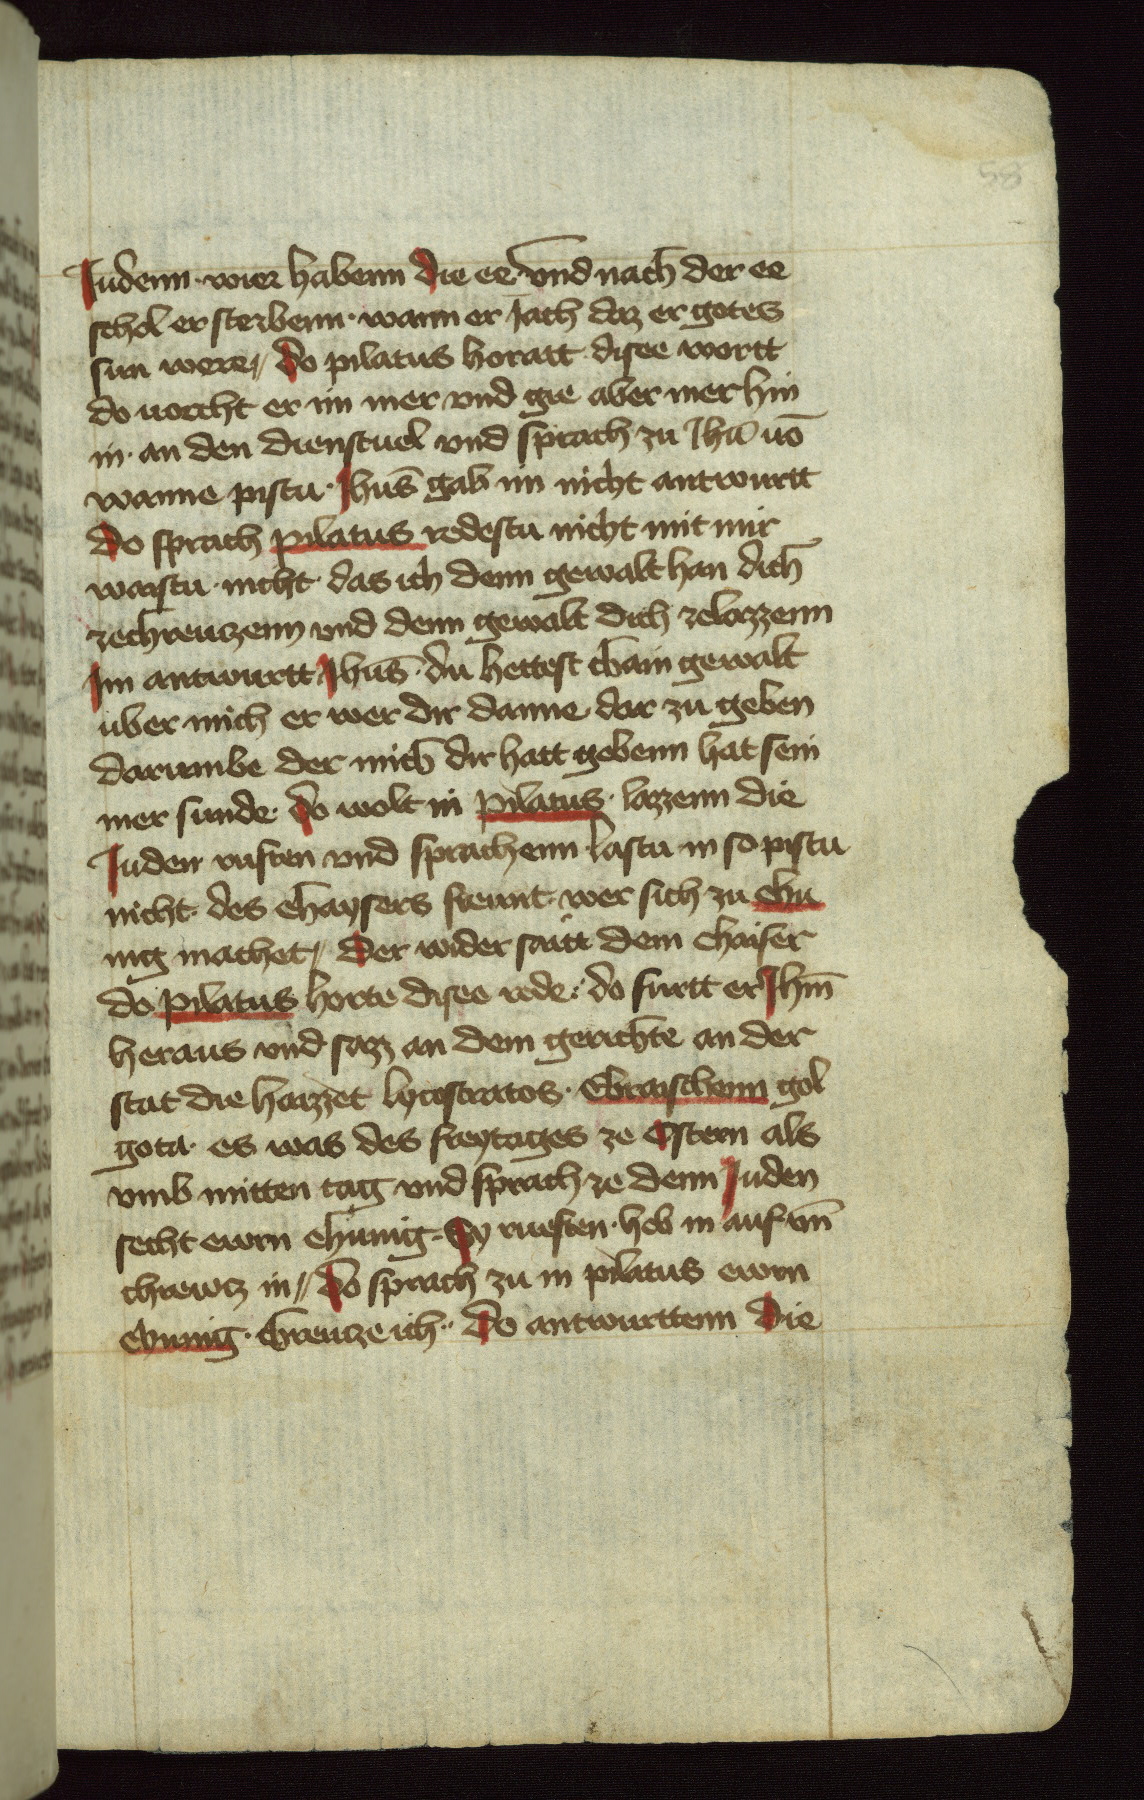 58
Judenn · wier habenn die ee · vnd nach der ee
schol er sterbenn · wann er Jach daz er gotes
sun were // do pilatus horatt disee wortt
do uorcht er im mer vnd gie aber mer hin
in · an den dienstuel vnd sprach zu Jhū uō
wanne pistu · Jhūs gab im nicht antwurtt
Do sprach pilatus redestu nicht mit mir
waistu · nicht · das ich denn gewalt han dich
zechreuczenn vnd denn gewalt dich zelazzenn
Im antwurtt Jhūs · du hettest chain gewalt
uber mich er wer dir danne dar zu geben
darumbe der mich dir hatt gebenn hat sein
mer sunde · do wolt in pilatus · lazzenn die
Juden ruften vnd sprachenn lastu in so pistu
nicht · des chaysers freunt · wer sich zu chu
nig machet // der wider saitt dem chaiser
do pilatus horte disee rede · do furtt er Jhm̄
heraus vnd sazz an dem gerichte an der
stat die haizzet lycostratos · Ebraischenn gol
gota · es was des freytages ze Ostern als
vmb mitten tag vnd sprach ze denn Juden
secht ewrn chunig · Sy ruesten · heb in auf vn̄
chrewtz in // do sprach zu in pilatus ewrn
chunig · chreucze ich · Do antwurttenn die